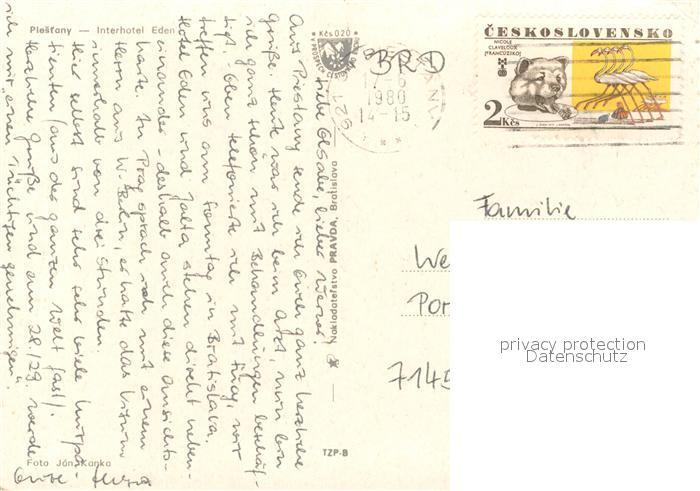 Piešťany — Interhotel Eden
Liebe Elsabe, lieber Werner!
Aus Piešťany sende ich Euch ganz herzliche
Grüße. Heute war ich beim Arzt, nun bin
ich ganz schön mit Behandlungen beschäf-
tigt. Eben telefonierte ich mit Lucy, wir
treffen uns am Sonntag in Bratislava.
Hotel Eden und Jalta stehen direkt neben-
einander - deshalb auch diese Ansichts-
karte. In Prag sprach ich mit einem
Herrn aus W-Berlin, er hatte das Visum
innerhalb von drei Stunden.
Hier selbst sind sehr sehr viele Kurpa-
tienten (aus der ganzen Welt fast).
Herzliche Grüße und am 28./29. werde
ich mir "einen Tüchtigen genehmigen".
Eure
Foto Ján Kanka
Nakladateľstvo PRAVDA, Bratislava
TZP-B
Kčs 0.20
BRD
921
17.6
1980
14-15
ČESKOSLOVENSKO
NICOLE
CLAVELOUX
(FRANCÚZSKO)
2 Kčs
Familie
We
Por
7145
privacy protection
Datenschutz